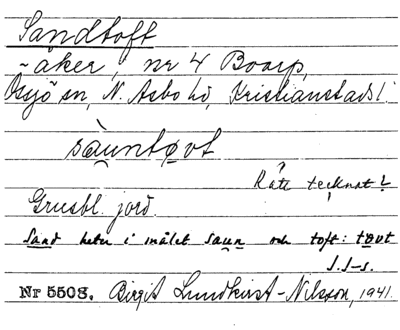 Sandtoft
~åker, nr 4 Boarp,
Össjö sn, N. Åsbo hd, Kristianstads l.
sa̤u̯ntǫvt
Rätt tecknat?
Grusbl. jord.
Sand heter i målet saun och toft: tovt
S.I-s.
Nr 5508. Birgit Lundkvist-Nilsson, 1941.